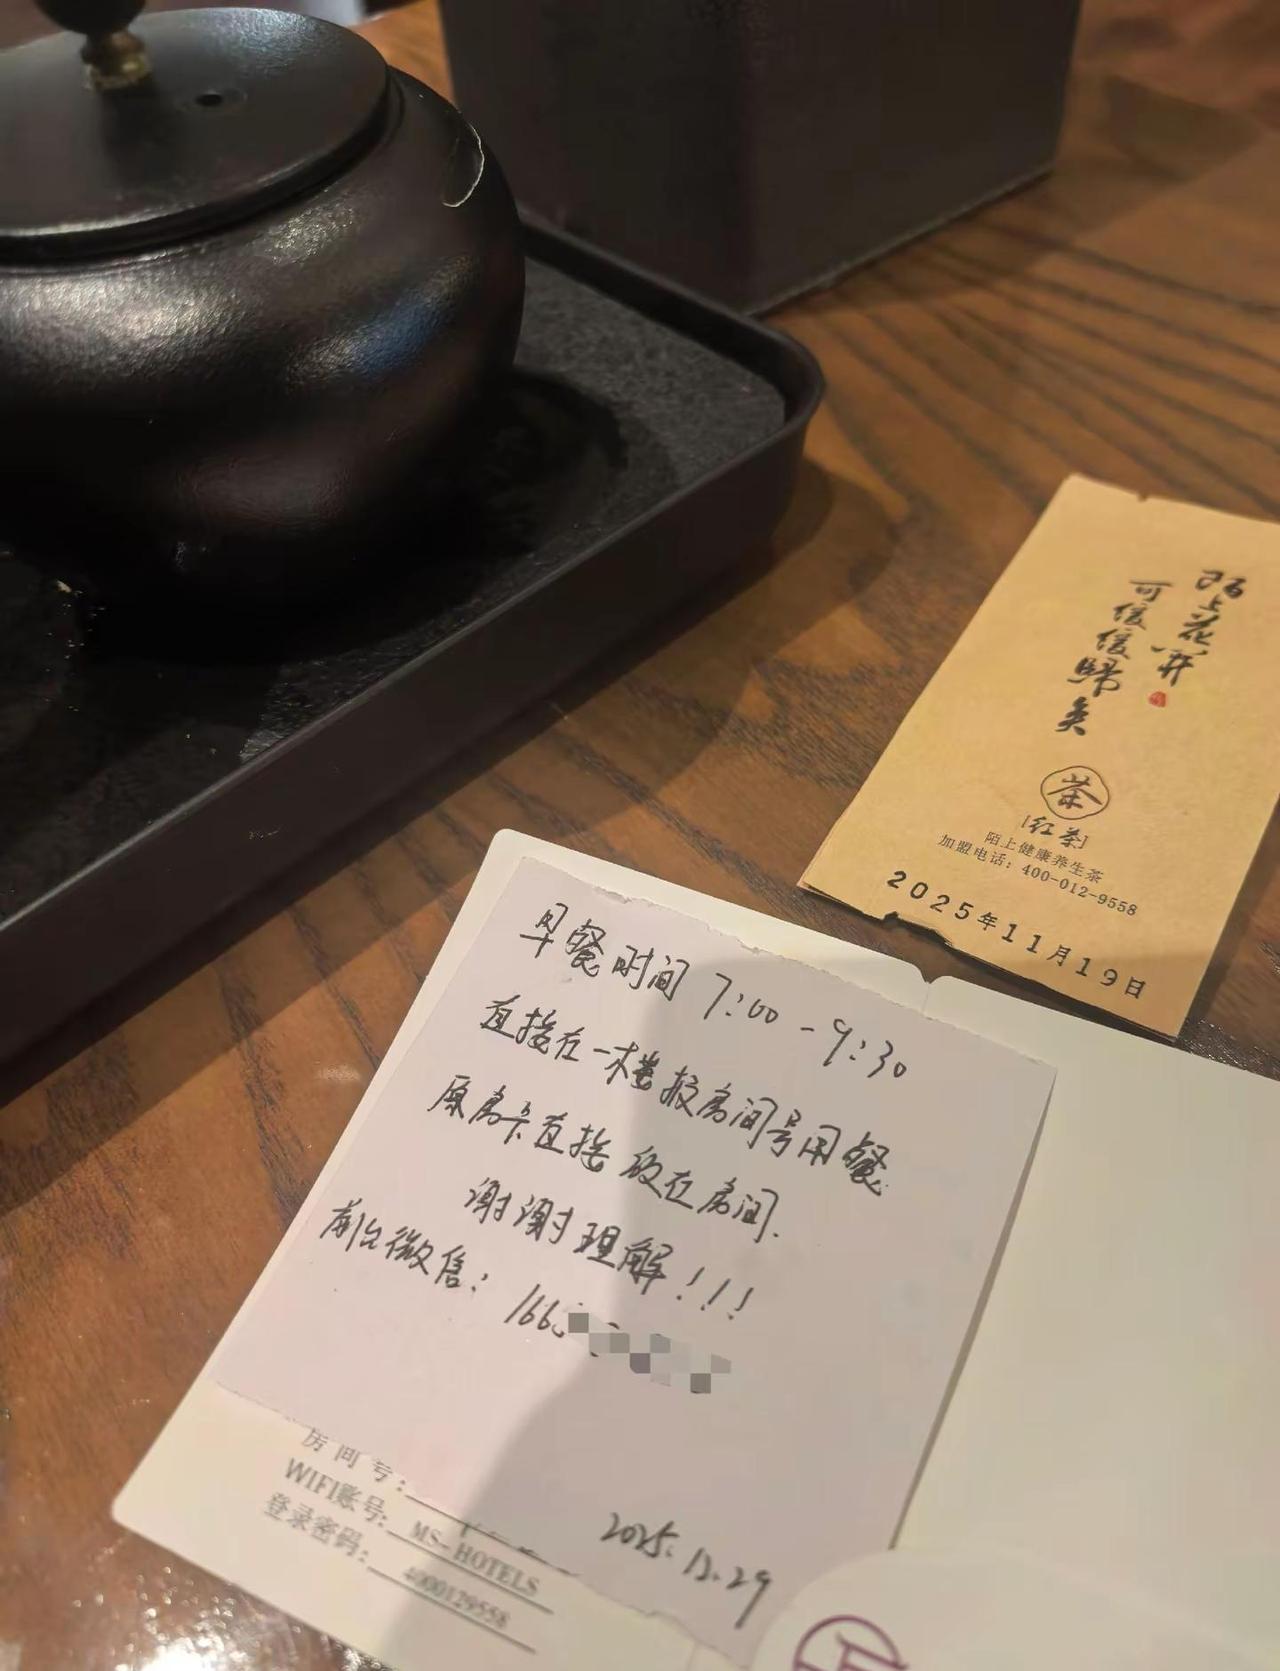 陌上花開
可緩緩歸矣
茶
红茶
陌上健康养生茶
加盟电话：400-012-9558
2025年11月19日
早餐时间 7:00-9:30
直接在一楼报房间号用餐
原房卡直接放在房间.
谢谢理解！！！
前台微信：166
2025.12.29
房间号：
WIFI账号：MS-HOTELS
登录密码：4000129558